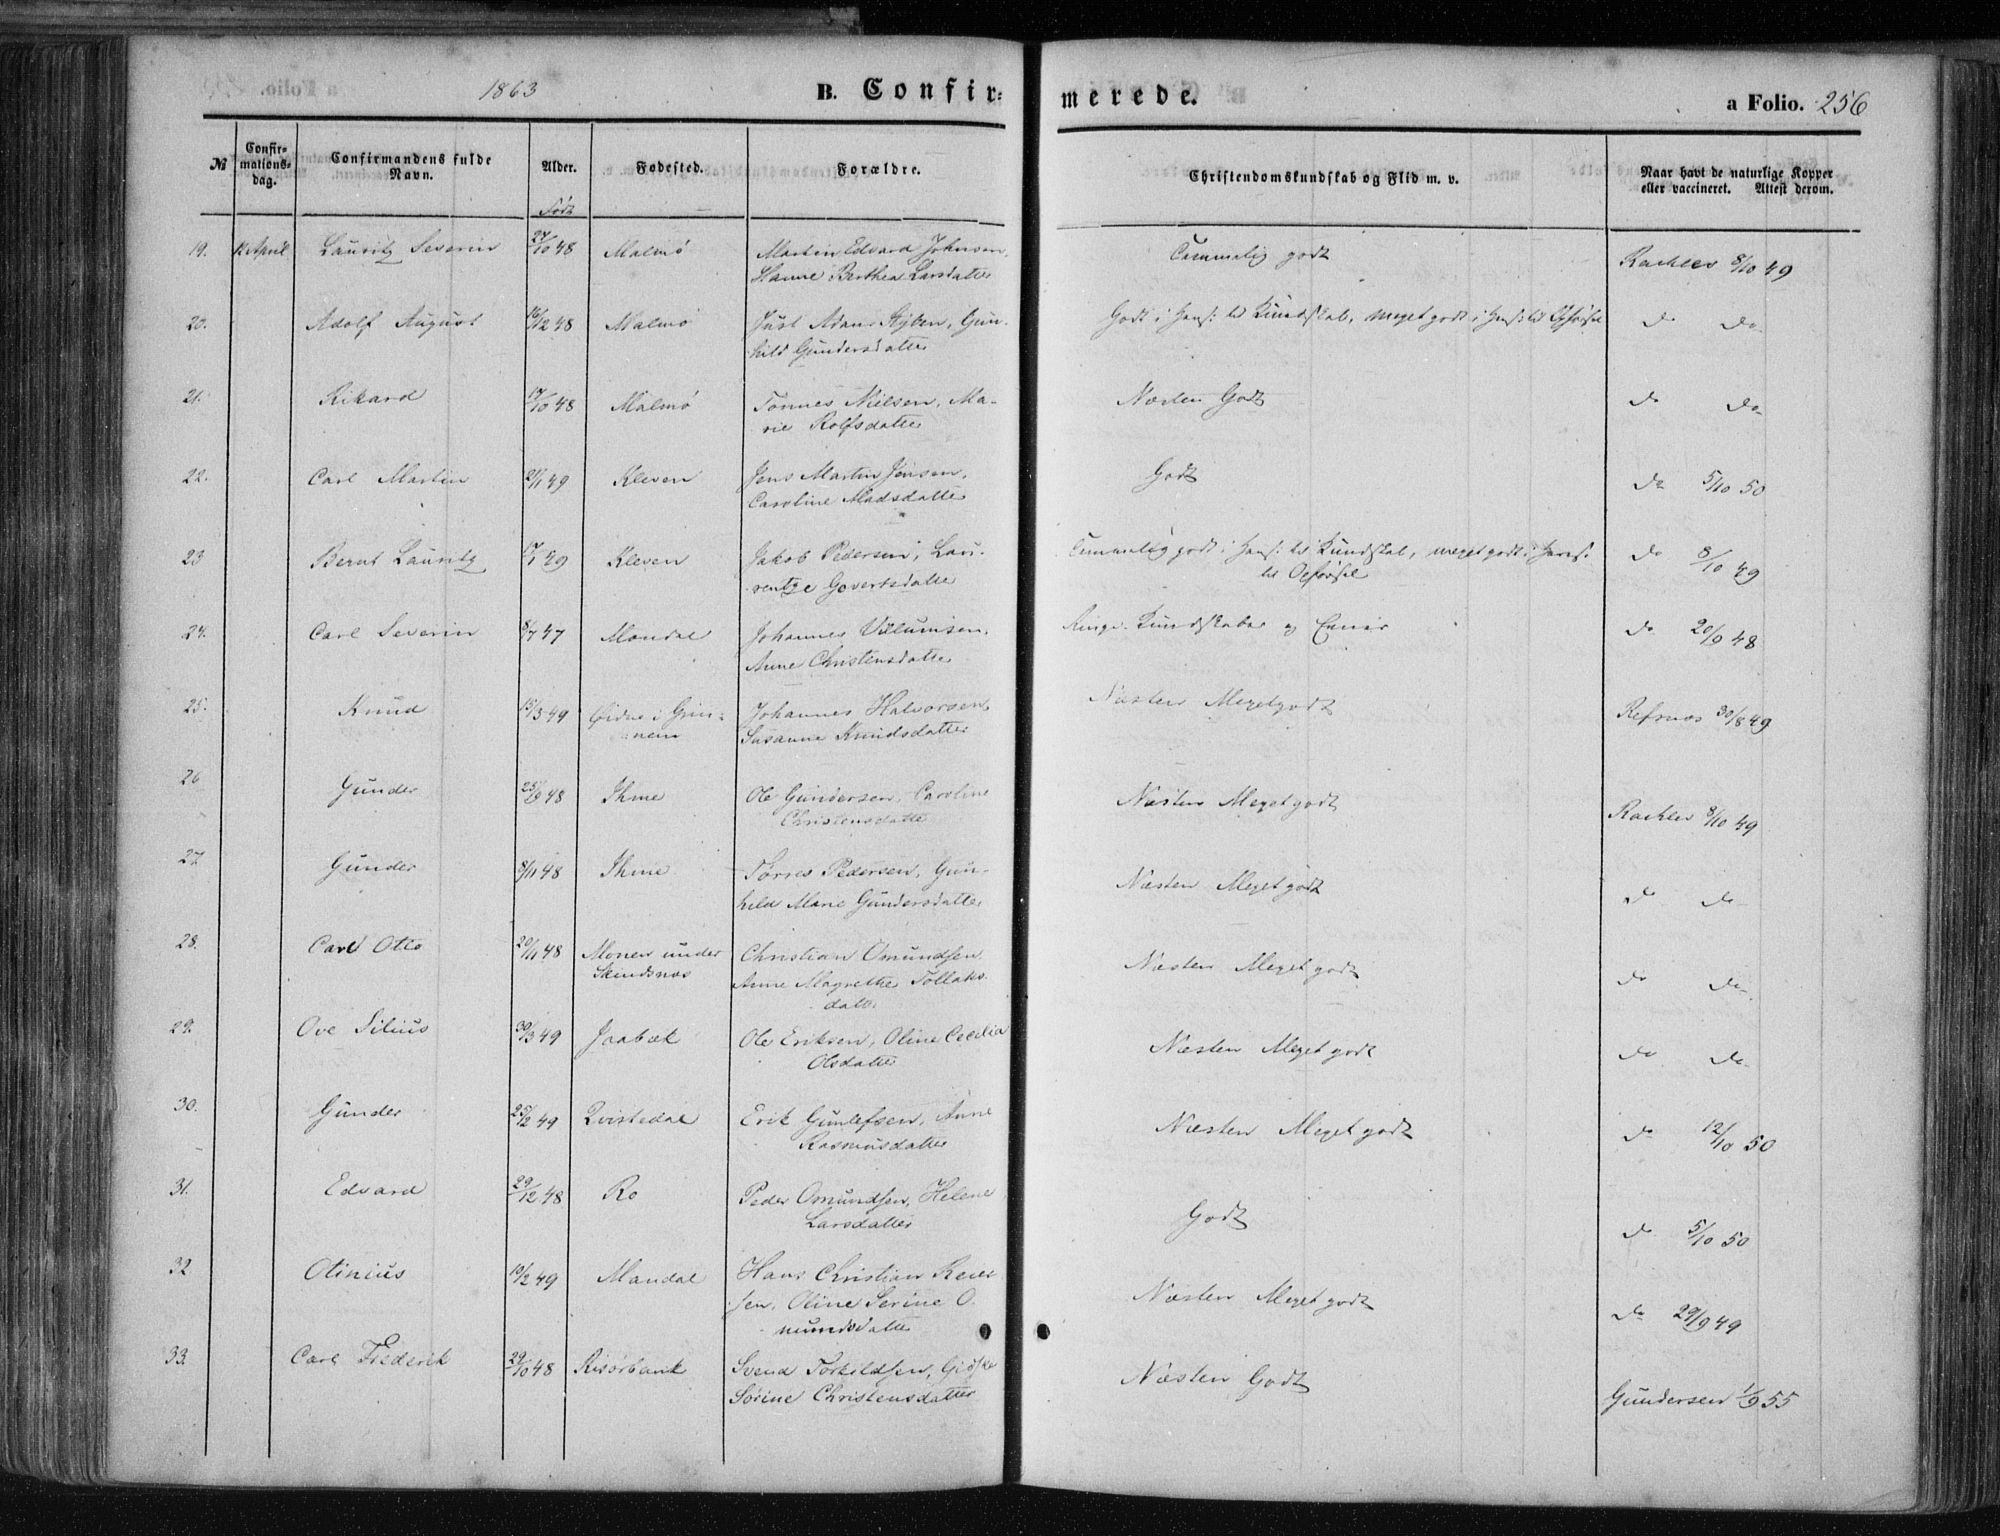 1863 B. Confir- merede. a Folio. 256
№ Confirmationsdag. Confirmandens fulde Navn. Alder. Fødested. Forældre. Christendomskundskab og Flid m. v. Naar havt de naturlige Kopper eller vaccineret. Attest derom.
Født
19. 12 April Lauritz Severin 24/10 48 Malmø Martin Edvard Johnsen, Temmelig godt Rachlev 8/10 49
Hanne Berthea Larsdatter
20. Adolf August 16/12 48 Malmø Just Adam Gun- Godt i Hens: til Kundskab, meget godt i Hens: til Opførsel do do
hild Gundersdatter
21. Rikard 17/10 48 Malmø Tønnes Nielsen, Ma- Næsten Godt do do
rie Rolfsdatter
22. Carl Martin 21/1 49 Kleven Jens Martin Jensen, Godt do 5/10 50
Caroline Madsdatter
23 Bernt Lauritz 17/1 49 Kleven Jakob Pedersen, Lau- Temmelig godt i Hens: til Kundskab, meget godt i Hens: do 8/10 49
rentze Govertsdatter til Opførsel
24. Carl Severin 8/7 47 Mandal Johannes Villumsen, Ringe Kundskaber og Evner do 20/9 48
Anne Christensdatter
25. Knud 15/3 49 Øidne i Grin- Johannes Halvorsen Næsten Megetgodt Refsnæs 30/8 49
nem Susanne Knudsdatter
26 Gunder 25/9 48 Ihme Ole Gundersen, Caroline Næsten Megetgodt Rachlev 8/10 49
Christensdatter
27. Gunder 8/11 48 Ihme Torres Pedersen, Gun- Næsten Megetgodt do do
hild Marie Gundersdatter
28. Carl Otto 20/11 48 Monen under Christian Omundsen Næsten Megetgodt do do
Skindsnæs Anne Magrethe Tollaks-
datr.
29. Ove Silius 30/3 49 Jaabæk Ole Eriksen, Oline Cecilia Næsten Megetgodt do do
Olsdatter
30. Gunder 25/2 49 Qvistedal Erik Gunlefsen, Anne Næsten Megetgodt do 12/10 50
Rasmusdatter
31. Edvard 29/12 48 Ro Peder Omundsen, Helene Godt do 5/10 50
Larsdatter
32 Otinius 10/2 49 Mandal Hans Christian Reier- Næsten Megetgodt do 29/9 49
sen, Oline Serine O-
mundsdatter
33. Carl Frederik 29/10 48 Risørbank Svend Torkildsen, Gidske Næsten Godt Gundersen 1/9 55
Sørine Christensdatter